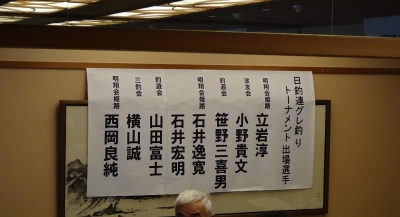 日釣連グレ釣り
トーナメント 出場選手
明翔会姫路 立岩淳
波友会 小野貴文
釣遊会 笹野三喜男
明翔会姫路 石井逸寛
明翔会姫路 石井宏明
釣遊会 山田富士
三釣会 横山誠
明翔会姫路 西岡良純